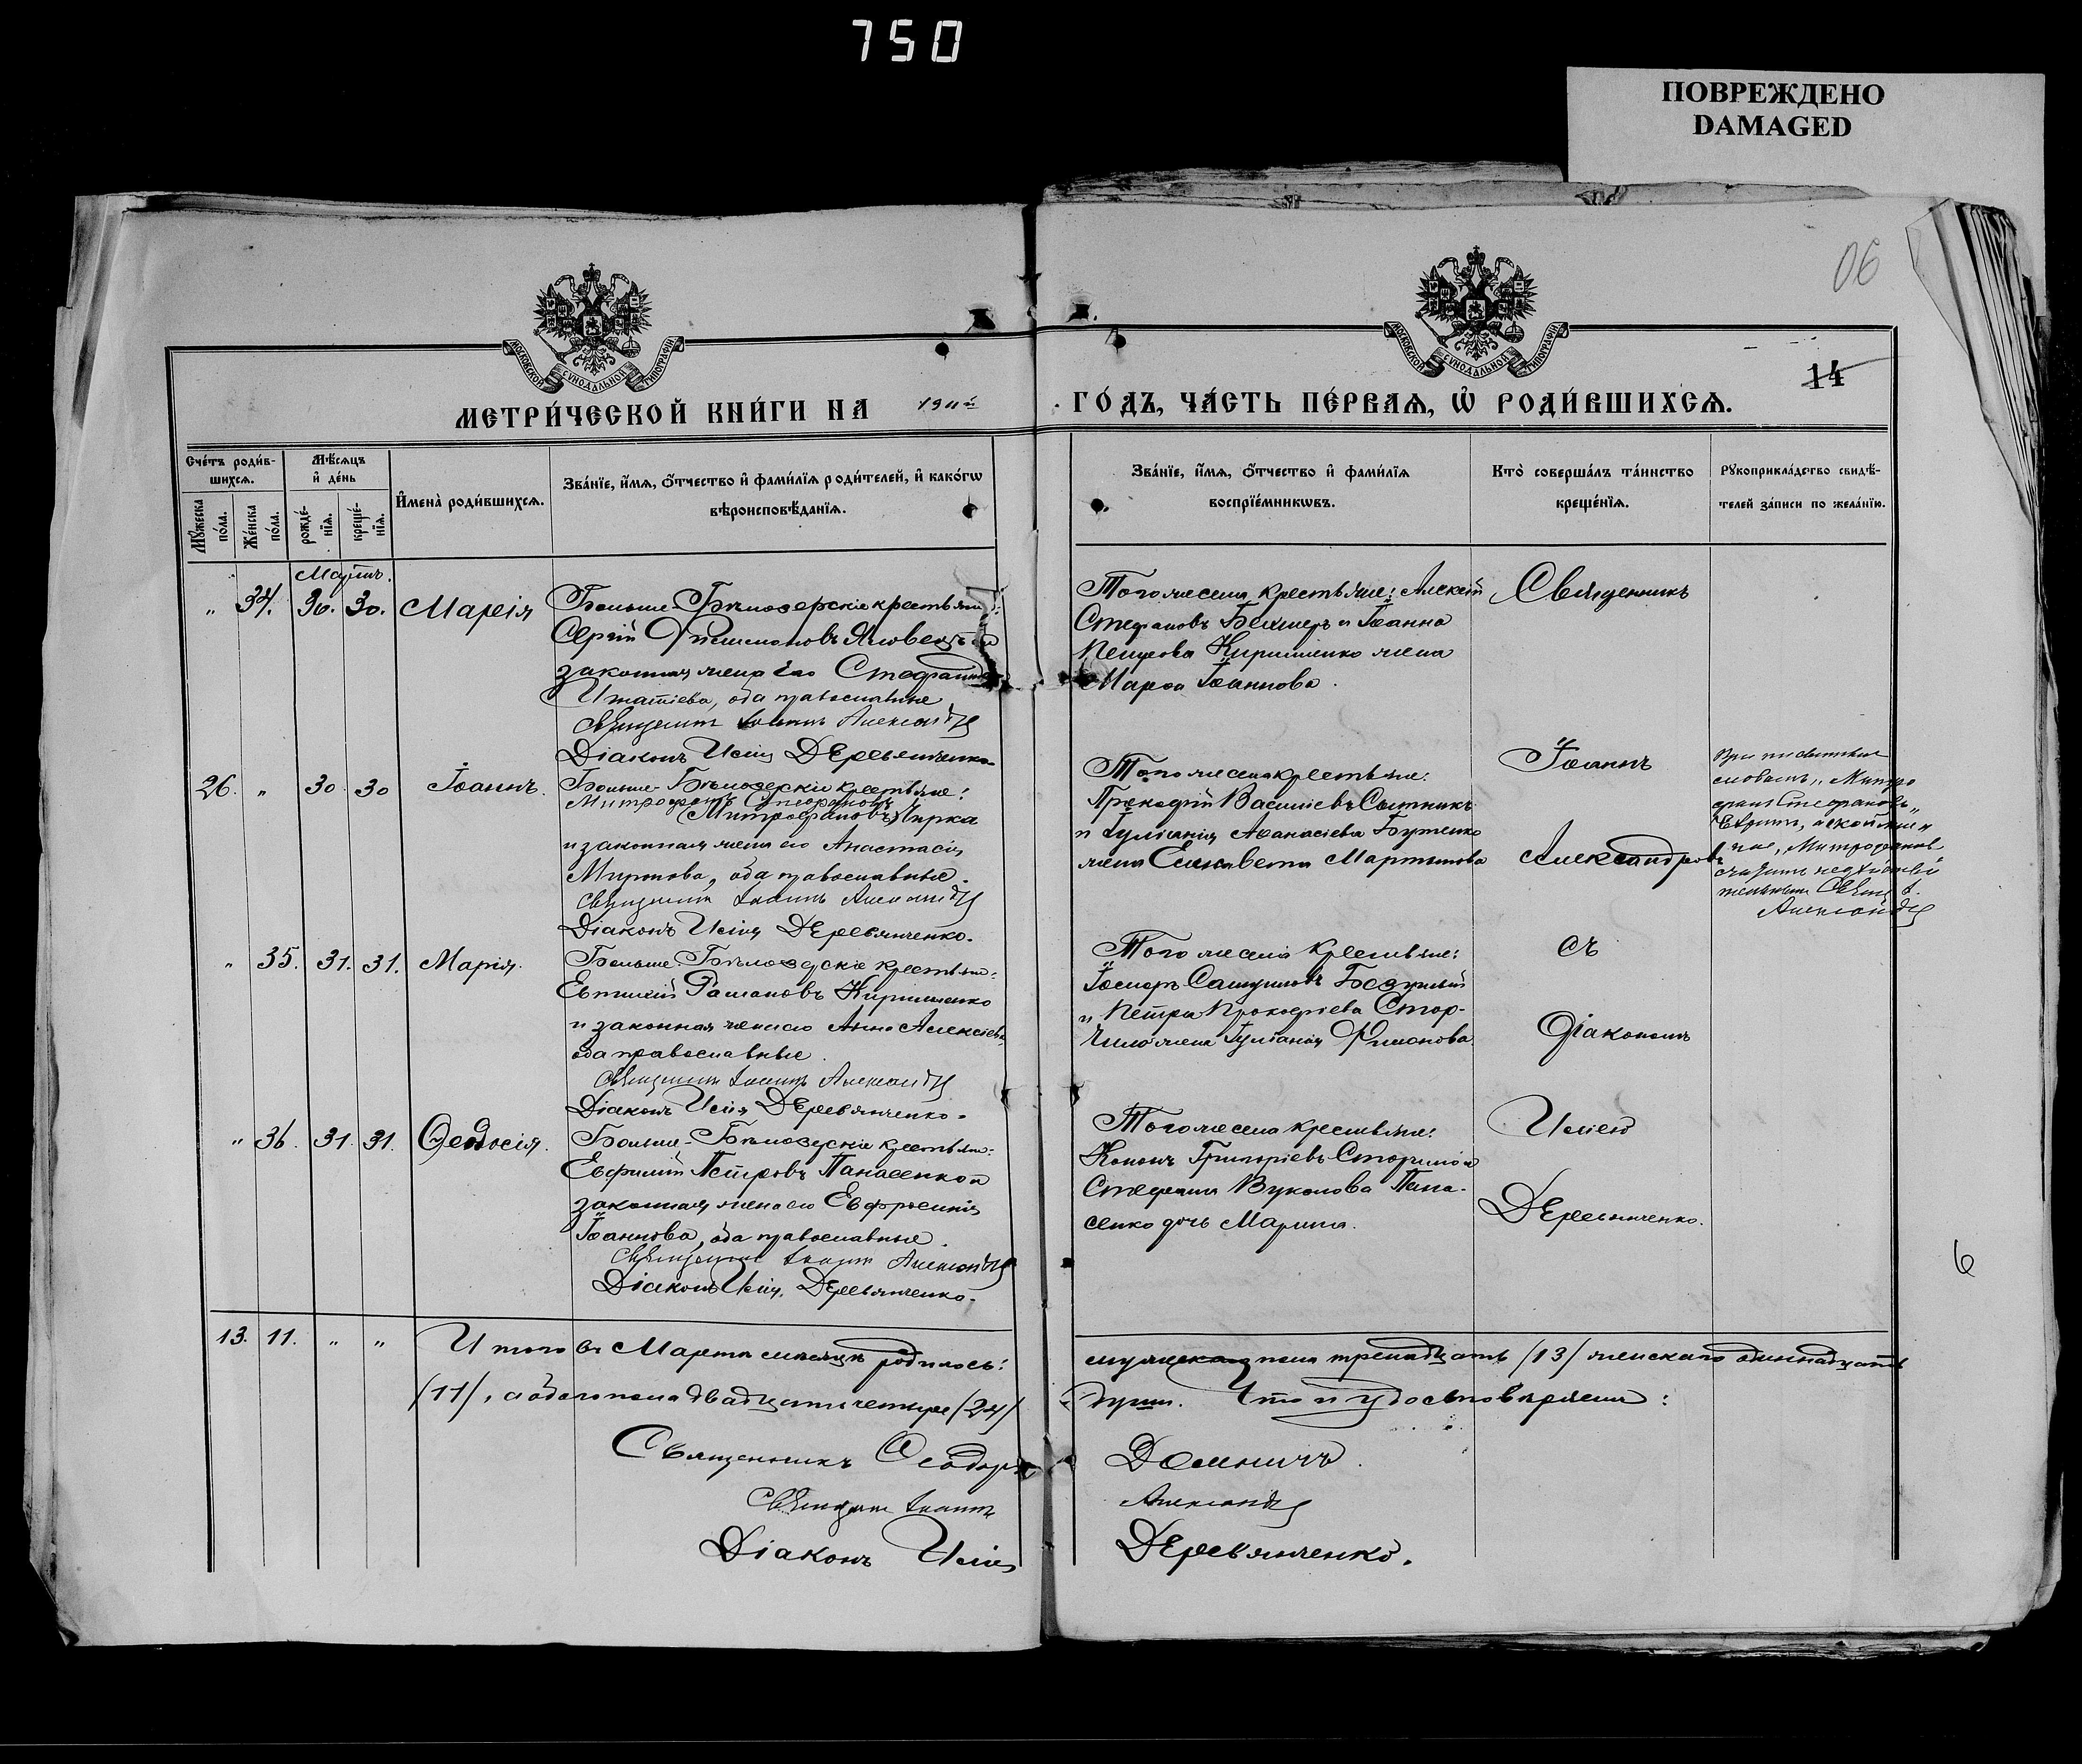 750
ПОВРЕЖДЕНО
DAMAGED
06
МОСКОВСКОЙ СѴНОДАЛЬНОЙ ТИПОГРАФІИ
МОСКОВСКОЙ СѴНОДАЛЬНОЙ ТИПОГРАФІИ
14
МЕТРИ́ЧЕСКОЙ КНИ́ГИ НА 1911й ГО́ДЪ, ЧА́СТЬ ПЕ́РВАѦ, Ѡ҆ РОДИ́ВШИХСѦ.
Сче́тъ роди́в-
шихсѧ.
Мѣ́сѧцъ
и҆ де́нь
Мꙋ́жеска
по́ла.
Же́нска
по́ла.
рожде́-
нїѧ.
креще́-
нїѧ.
И҆мена̀ роди́вшихсѧ.
Зва́нїе, и҆́мѧ, ѻ҆́тчество и҆ фами́лїѧ роди́телей, и҆ како́гѡ
вѣроисповѣ́данїѧ.
Зва́нїе, и҆́мѧ, ѻ҆́тчество и҆ фами́лїѧ
воспрїе́мникѡвъ.
Кто̀ соверша́лъ та́инство
креще́нїѧ.
Рꙋкоприкла́дство свидѣ́-
телей за́писи по жела́нїю.
Мартъ.
" 34. 30. 30. Марѳія
Больше-Бѣлозерскіе крестьяне:
Сергій Филимоновъ Яловецъ и
законная жена его Стефанида
Игнатіева, оба православные
Священникъ Іоаннъ Александровъ
Діаконъ Илія Деревянченко.
Того же села крестьяне: Алексѣй
Стефановъ и Іоанна
Петрова Кириленко жена
Марѳа Іоаннова.
Священникъ
26. " 30 30 Іоаннъ.
Больше-Бѣлозерскіе крестьяне:
Митрофанъ Стефановъ
(Митрофановъ) Чирка
и законная жена его Анастасія
Миронова, оба православные.
Священникъ Іоаннъ Александровъ
Діаконъ Илія Деревянченко.
Того же села крестьяне:
Прокофій Василіевъ Сытникъ
и Іуліанія Аѳанасіева Бутенко
жена Елисавета Мартынова
Іоаннъ
Александровъ
Митро
фанъ Стефановъ"
Митрофанов
считать недѣйстви
тельнымъ Свящ. І.
Александровъ
" 35. 31. 31. Марія.
Больше-Бѣлозерскіе крестьяне:
Евтихій Романовъ Кириленко
и законная жена его Анна Алексіева
оба православные.
Священникъ Іоаннъ Александровъ
Діаконъ Илія Деревянченко.
Того же села крестьяне:
и Петра Прокофіева Стор-
жена Іуліанія Филипова.
съ
Діакономъ
" 36. 31. 31. Ѳеодосія.
Больше-Бѣлозерскіе крестьяне:
Евфимій Петровъ Панасенко и
законная жена его Евфросинія
Іоаннова, оба православные.
Священникъ Іоаннъ Александровъ
Діаконъ Илія Деревянченко.
Того же села крестьяне:
Кононъ Григоріевъ и
Стефана Вуколова Пана-
сенко дочь Марина.
Иліею
Деревянченко.
6
13. 11. " " Итого въ Мартѣ мѣсяцѣ родилось: мужескаго пола тринадцать /13/ женскаго одиннадцать
/11/, а обоего пола двадцать четыре /24/ душъ. Что и удостовѣряемъ:
Священникъ Ѳеодоръ Доминичъ.
Священникъ Іоаннъ Александровъ
Діаконъ Илія Деревянченко.